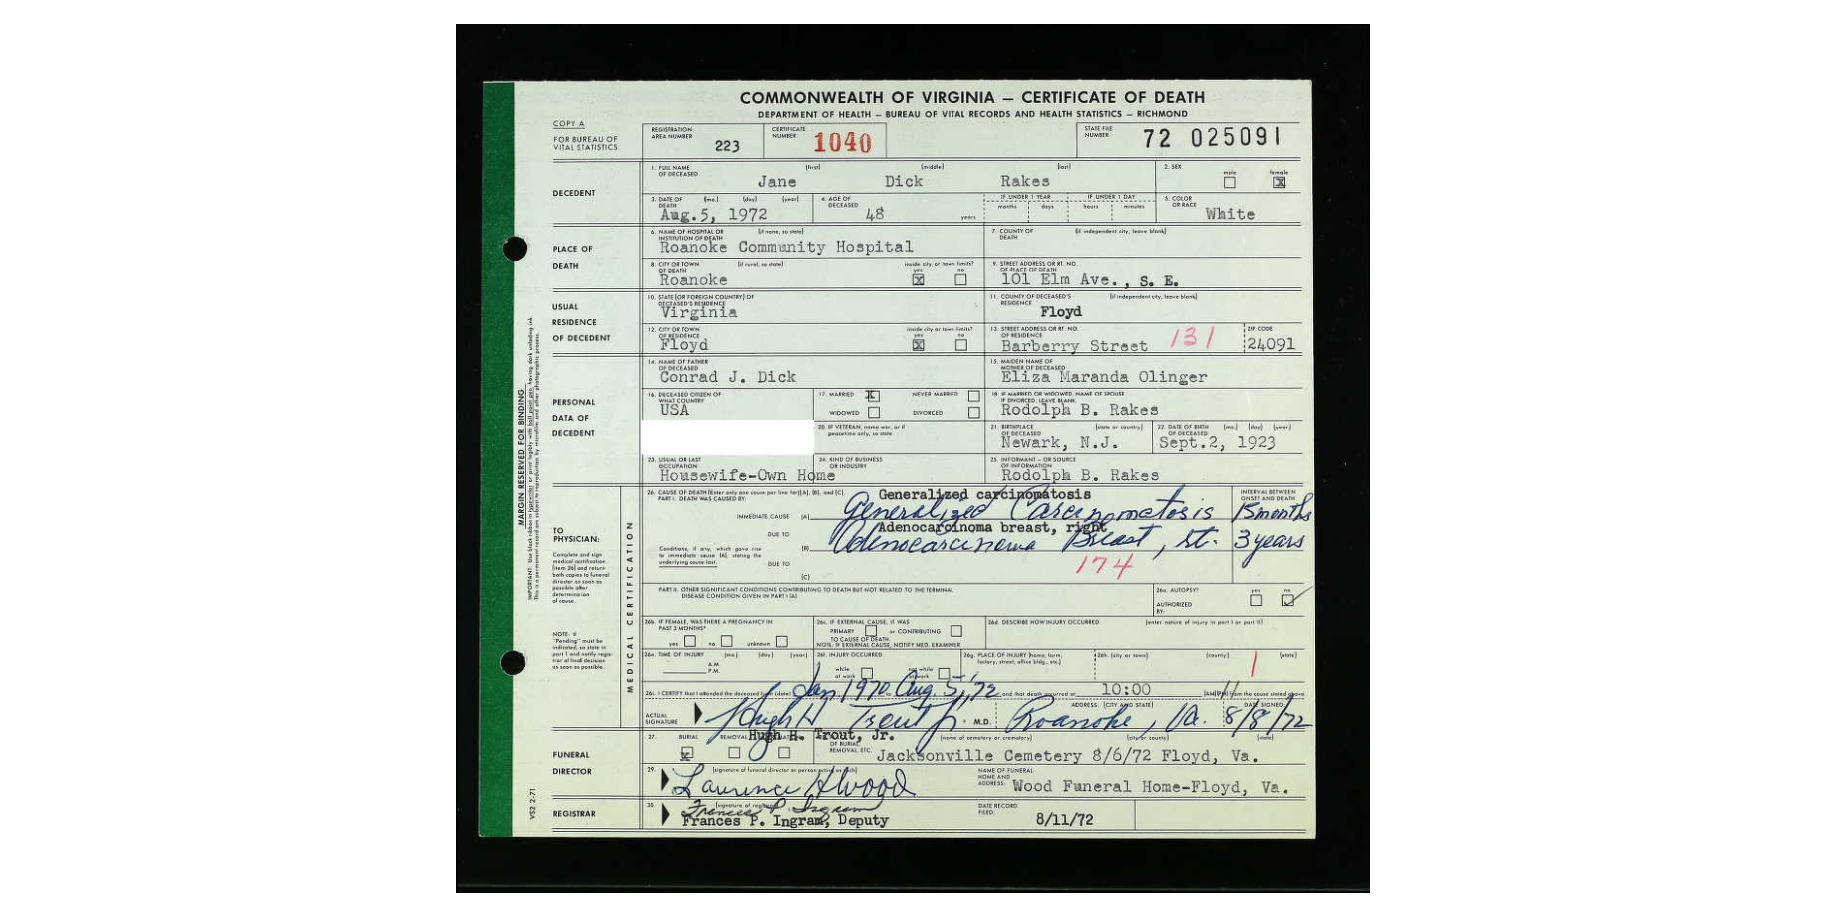 COMMONWEALTH OF VIRGINIA — CERTIFICATE OF DEATH
DEPARTMENT OF HEALTH — BUREAU OF VITAL RECORDS AND HEALTH STATISTICS — RICHMOND
COPY A
FOR BUREAU OF
VITAL STATISTICS
REGISTRATION
AREA NUMBER
223
CERTIFICATE
NUMBER
1040
STATE FILE
NUMBER
72 025091
DECEDENT
1. FULL NAME
OF DECEASED
(first) (middle) (last)
Jane Dick Rakes
2. SEX
male female
X
3. DATE OF
DEATH
(mo.) (day) (year)
Aug.5, 1972
4. AGE OF
DECEASED
48
years
IF UNDER 1 YEAR
months days
IF UNDER 1 DAY
hours minutes
5. COLOR
OR RACE
White
PLACE OF
DEATH
6. NAME OF HOSPITAL OR
INSTITUTION OF DEATH
(if none, so state)
Roanoke Community Hospital
7. COUNTY OF
DEATH
(if independent city, leave blank)
8. CITY OR TOWN
OF DEATH
(if rural, so state)
Roanoke
inside city or town limits?
yes no
X
9. STREET ADDRESS OR RT. NO.
OF PLACE OF DEATH
101 Elm Ave., S. E.
USUAL
RESIDENCE
OF DECEDENT
10. STATE (OR FOREIGN COUNTRY) OF
DECEASED'S RESIDENCE
Virginia
11. COUNTY OF DECEASED'S
RESIDENCE
(if independent city, leave blank)
Floyd
12. CITY OR TOWN
OF RESIDENCE
Floyd
inside city or town limits?
yes no
X
13. STREET ADDRESS OR RT. NO.
OF RESIDENCE
Barberry Street
131
ZIP CODE
24091
PERSONAL
DATA OF
DECEDENT
14. NAME OF FATHER
OF DECEASED
Conrad J. Dick
15. MAIDEN NAME OF
MOTHER OF DECEASED
Eliza Maranda Olinger
16. DECEASED CITIZEN OF
WHAT COUNTRY
USA
17. MARRIED X NEVER MARRIED
WIDOWED DIVORCED
18. IF MARRIED OR WIDOWED, NAME OF SPOUSE
IF DIVORCED, LEAVE BLANK
Rodolph B. Rakes
20. IF VETERAN, name war, or if
peacetime only, so state
21. BIRTHPLACE
OF DECEASED
(state or country)
Newark, N.J.
22. DATE OF BIRTH
OF DECEASED
(mo.) (day) (year)
Sept.2, 1923
23. USUAL OR LAST
OCCUPATION
Housewife-Own Home
24. KIND OF BUSINESS
OR INDUSTRY
25. INFORMANT — OR SOURCE
OF INFORMATION
Rodolph B. Rakes
MARGIN RESERVED FOR BINDING
TO
PHYSICIAN:
Complete and sign
medical certification
(item 26) and return
both copies to funeral
director as soon as
possible after
determination
of cause.
NOTE: If
"Pending" must be
indicated, so state in
part I and notify regis-
trar of final decision
as soon as possible.
MEDICAL CERTIFICATION
26. CAUSE OF DEATH (Enter only one cause per line for (A), (B), and (C)
PART I. DEATH WAS CAUSED BY:
INTERVAL BETWEEN
ONSET AND DEATH
Generalized carcinomatosis
IMMEDIATE CAUSE (A) Generalized Carcinomatosis 15 months
Adenocarcinoma breast, right
DUE TO
(B) Adenocarcinoma Breast, rt. 3 years
Conditions, if any, which gave rise
to immediate cause (A), stating the
underlying cause last.
DUE TO
(C)
174
PART II. OTHER SIGNIFICANT CONDITIONS CONTRIBUTING TO DEATH BUT NOT RELATED TO THE TERMINAL
DISEASE CONDITION GIVEN IN PART I (A)
26a. AUTOPSY?
yes no
AUTHORIZED
BY:
26b. IF FEMALE, WAS THERE A PREGNANCY IN
PAST 3 MONTHS?
yes no unknown
26c. IF EXTERNAL CAUSE, IT WAS
PRIMARY or CONTRIBUTING
TO CAUSE OF DEATH.
NOTE: IF EXTERNAL CAUSE, NOTIFY MED. EXAMINER
26d. DESCRIBE HOW INJURY OCCURRED
(enter nature of injury in part I or part II)
26e. TIME OF INJURY (mo.) (day) (year)
A.M.
P.M.
26f. INJURY OCCURRED
while
at work
not while
at work
26g. PLACE OF INJURY (home, farm,
factory, street, office bldg., etc.)
26h. (city or town) (county) (state)
1
26i. I CERTIFY that I attended the deceased from (date) Jan 1970 Aug. 5, '72 and that death occurred at 10:00 (AM) (PM) from the cause stated above
ACTUAL
SIGNATURE
Hugh H Trout Jr. M.D.
ADDRESS: (CITY AND STATE)
Roanoke, Va.
DATE SIGNED:
8/8/72
Hugh H. Trout, Jr.
FUNERAL
DIRECTOR
27. BURIAL REMOVAL
X
OF BURIAL
REMOVAL, ETC.
(name of cemetery or crematory) (city or county) (state)
Jacksonville Cemetery 8/6/72 Floyd, Va.
29. (signature of funeral director or person acting as such)
Laurence H Wood
NAME OF FUNERAL
HOME AND
ADDRESS:
Wood Funeral Home-Floyd, Va.
REGISTRAR
30. (signature of registrar)
Frances P. Ingram
Frances P. Ingram, Deputy
DATE RECORD
FILED:
8/11/72
VS2 2-71